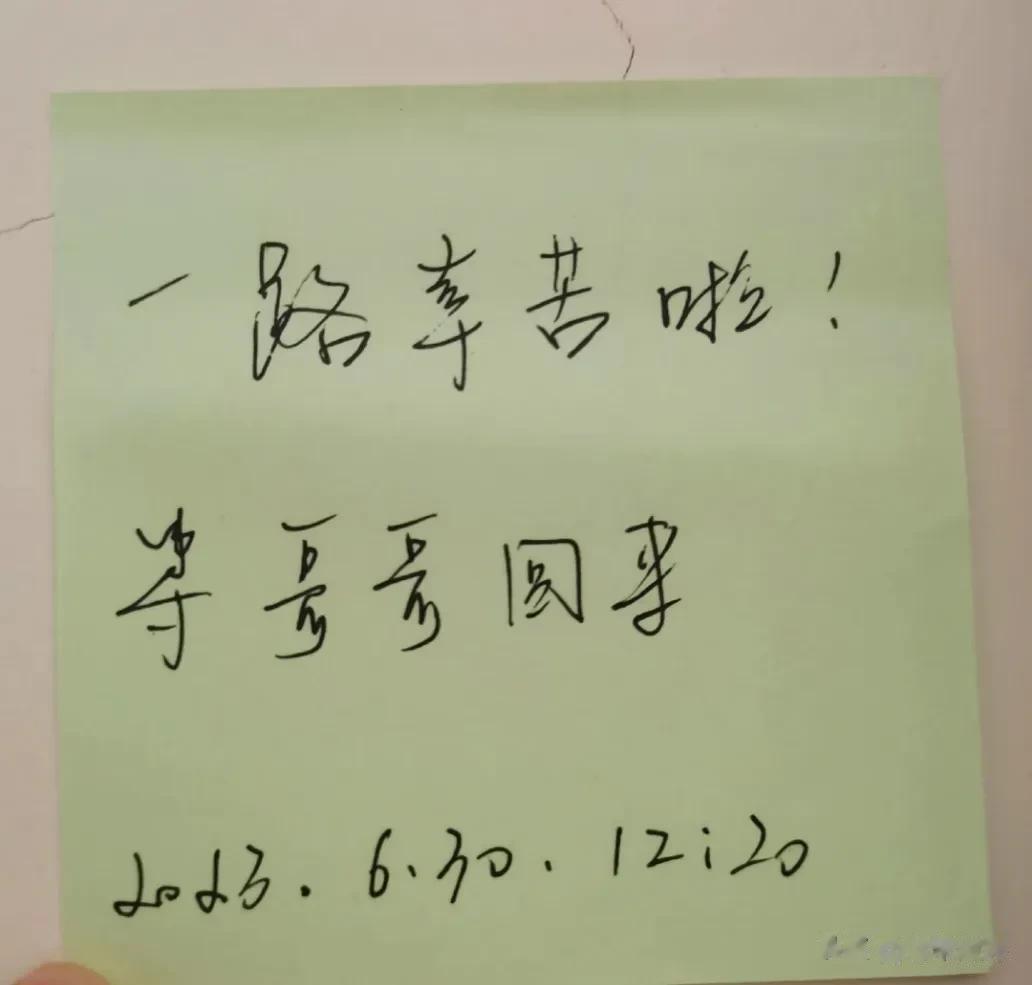 一路辛苦啦!
等哥哥回来
2023.6.30.12:20